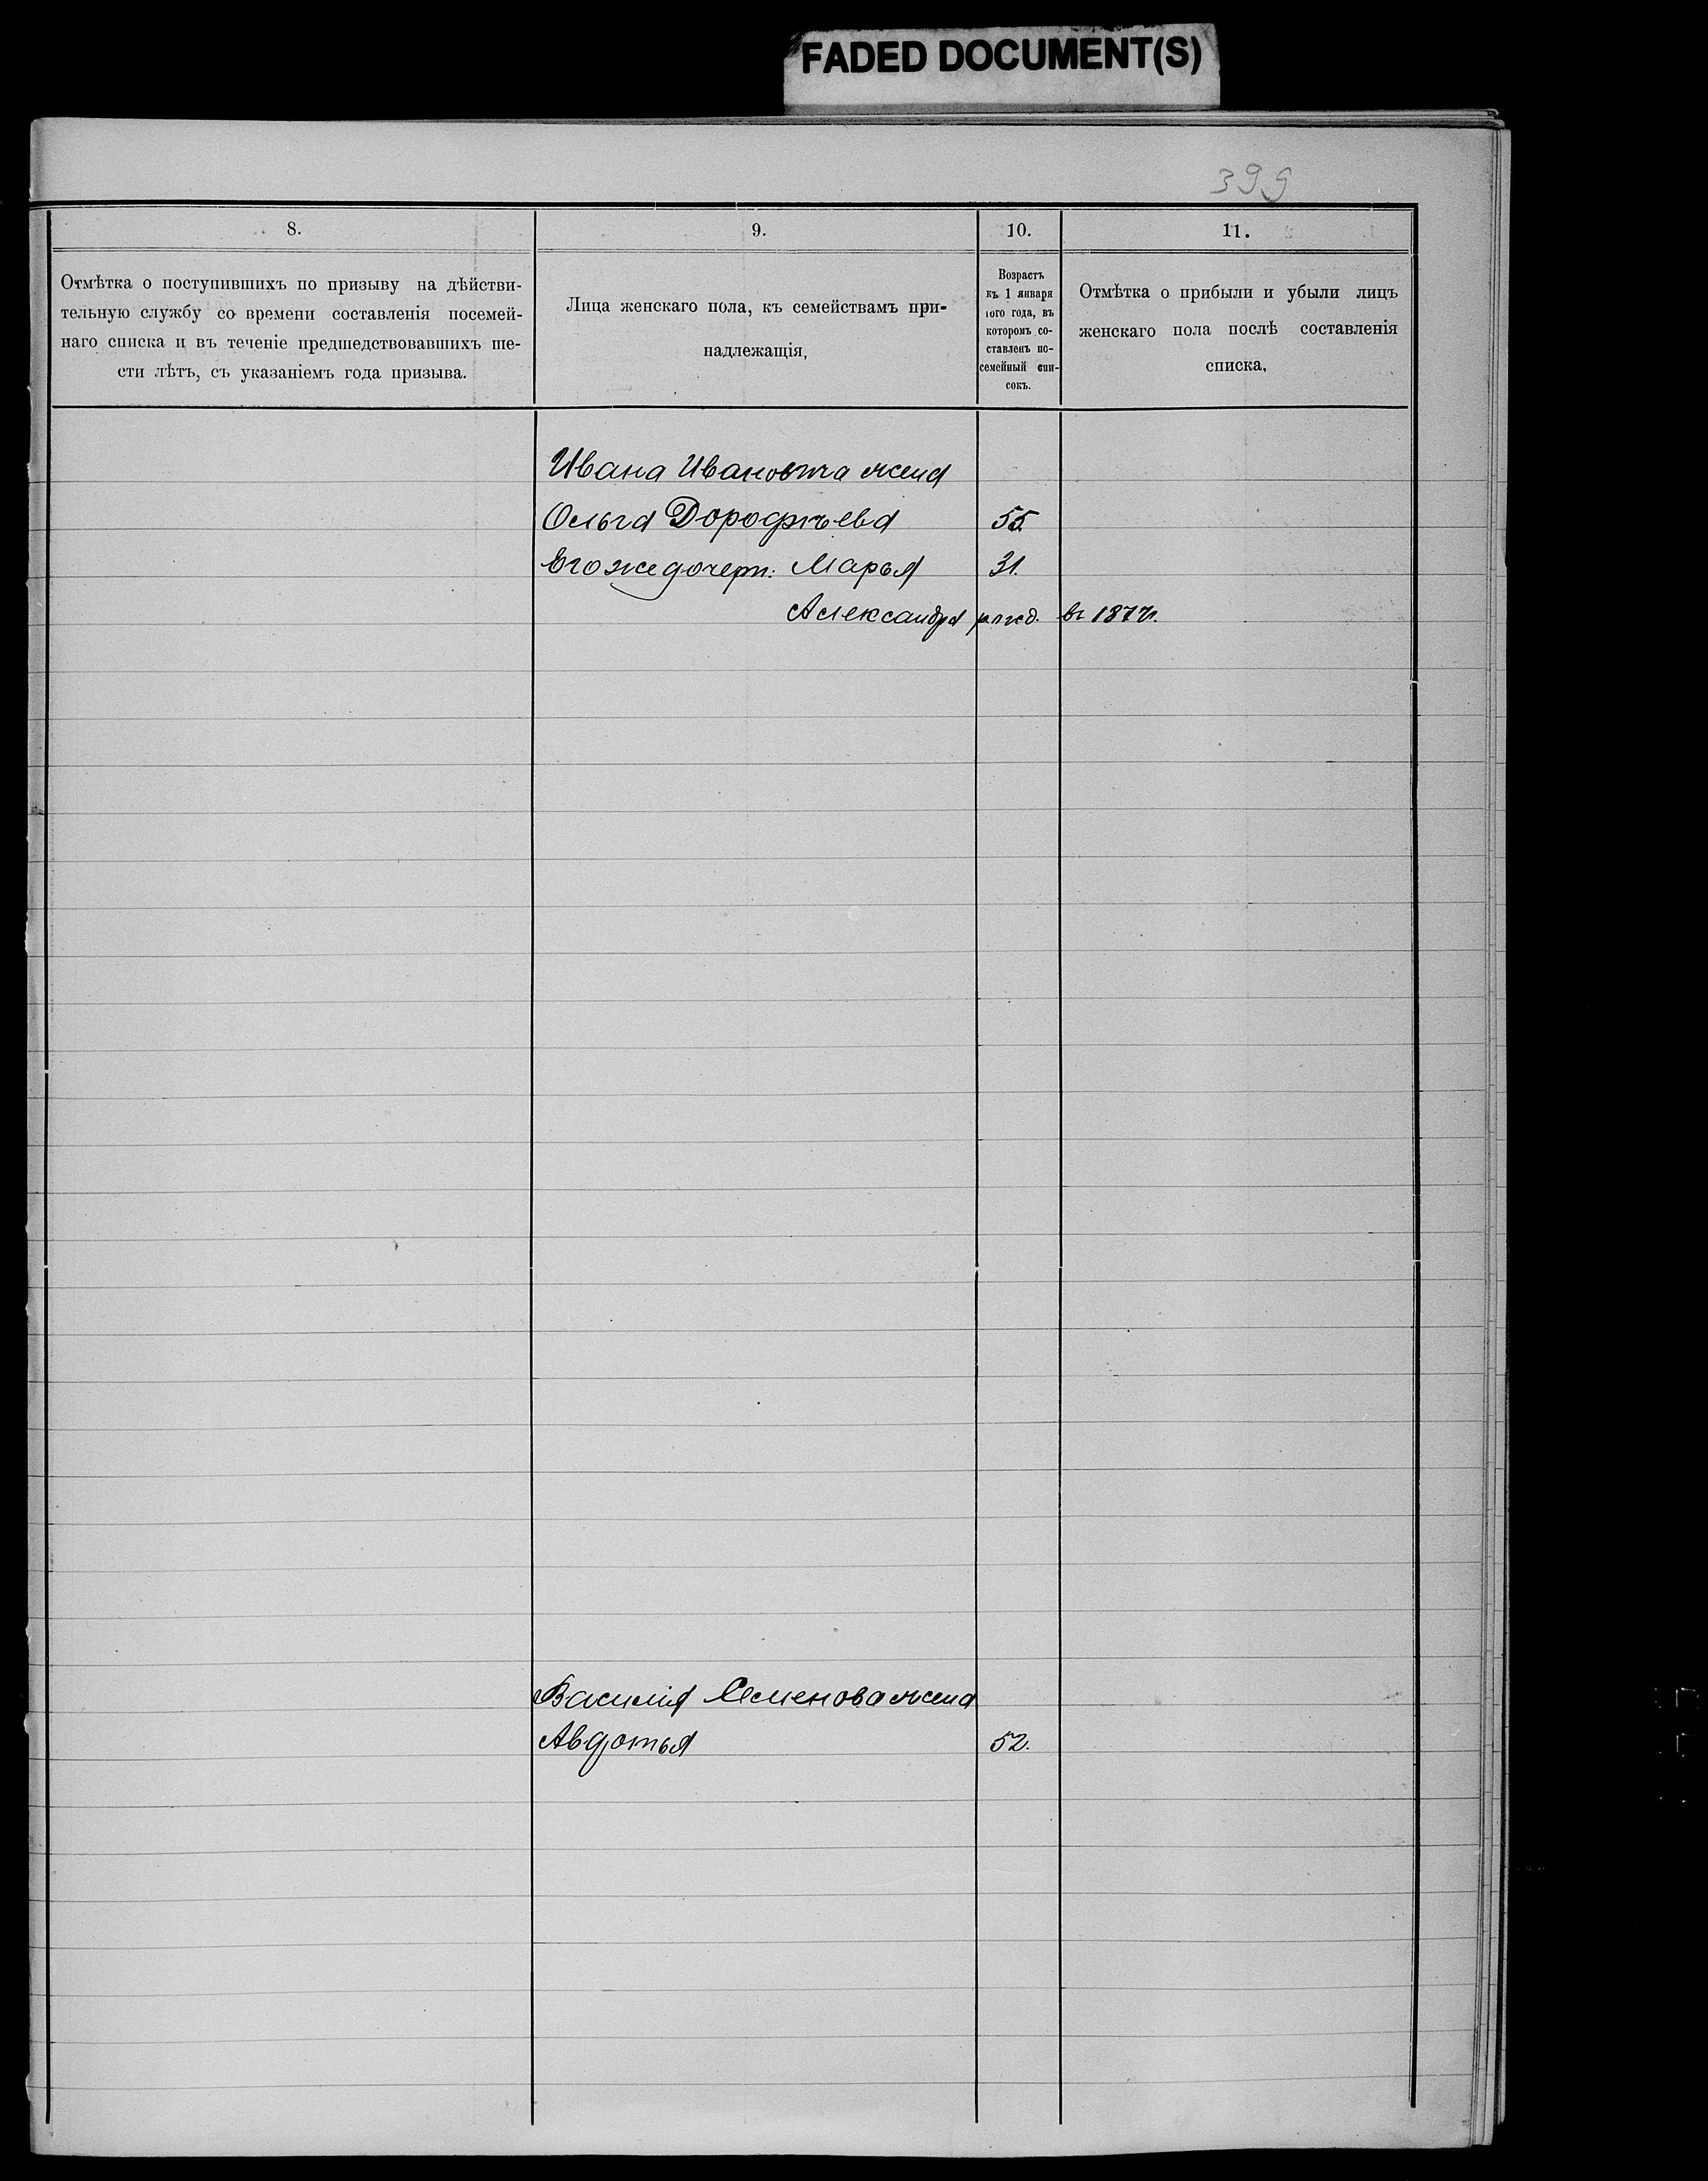 FADED DOCUMENT(S)
399
8.
9.
10.
11.
Отмѣтка о поступившихъ по призыву на дѣйстви-
тельную службу со времени составленія посемей-
наго списка и въ теченіе предшедствовавшихъ ше-
сти лѣтъ, съ указаніемъ года призыва.
Лица женскаго пола, къ семействамъ при-
надлежащія,
Возрастъ
къ 1 января
того года, въ
которомъ со-
ставленъ по-
семейный спи-
сокъ.
Отмѣтка о прибыли и убыли лицъ
женскаго пола послѣ составленія
списка.
Ивана Ивановича жена
Ольга Дорофѣева 55.
Его же дочери: Марья 31.
Александра рожд. въ 1877г.
Василія Семенова жена
Авдотья 52.